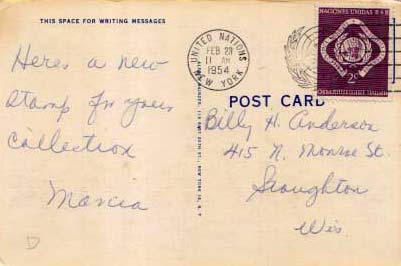 THIS SPACE FOR WRITING MESSAGES
Here's a new
stamp for your
collection
Marcia
D
UNITED NATIONS
FEB 23
11 AM
1954
NEW YORK
NACIONES UNIDAS
2¢
POST CARD
Billy H. Anderson
415 N. Monroe St.
Stoughton
Wis.